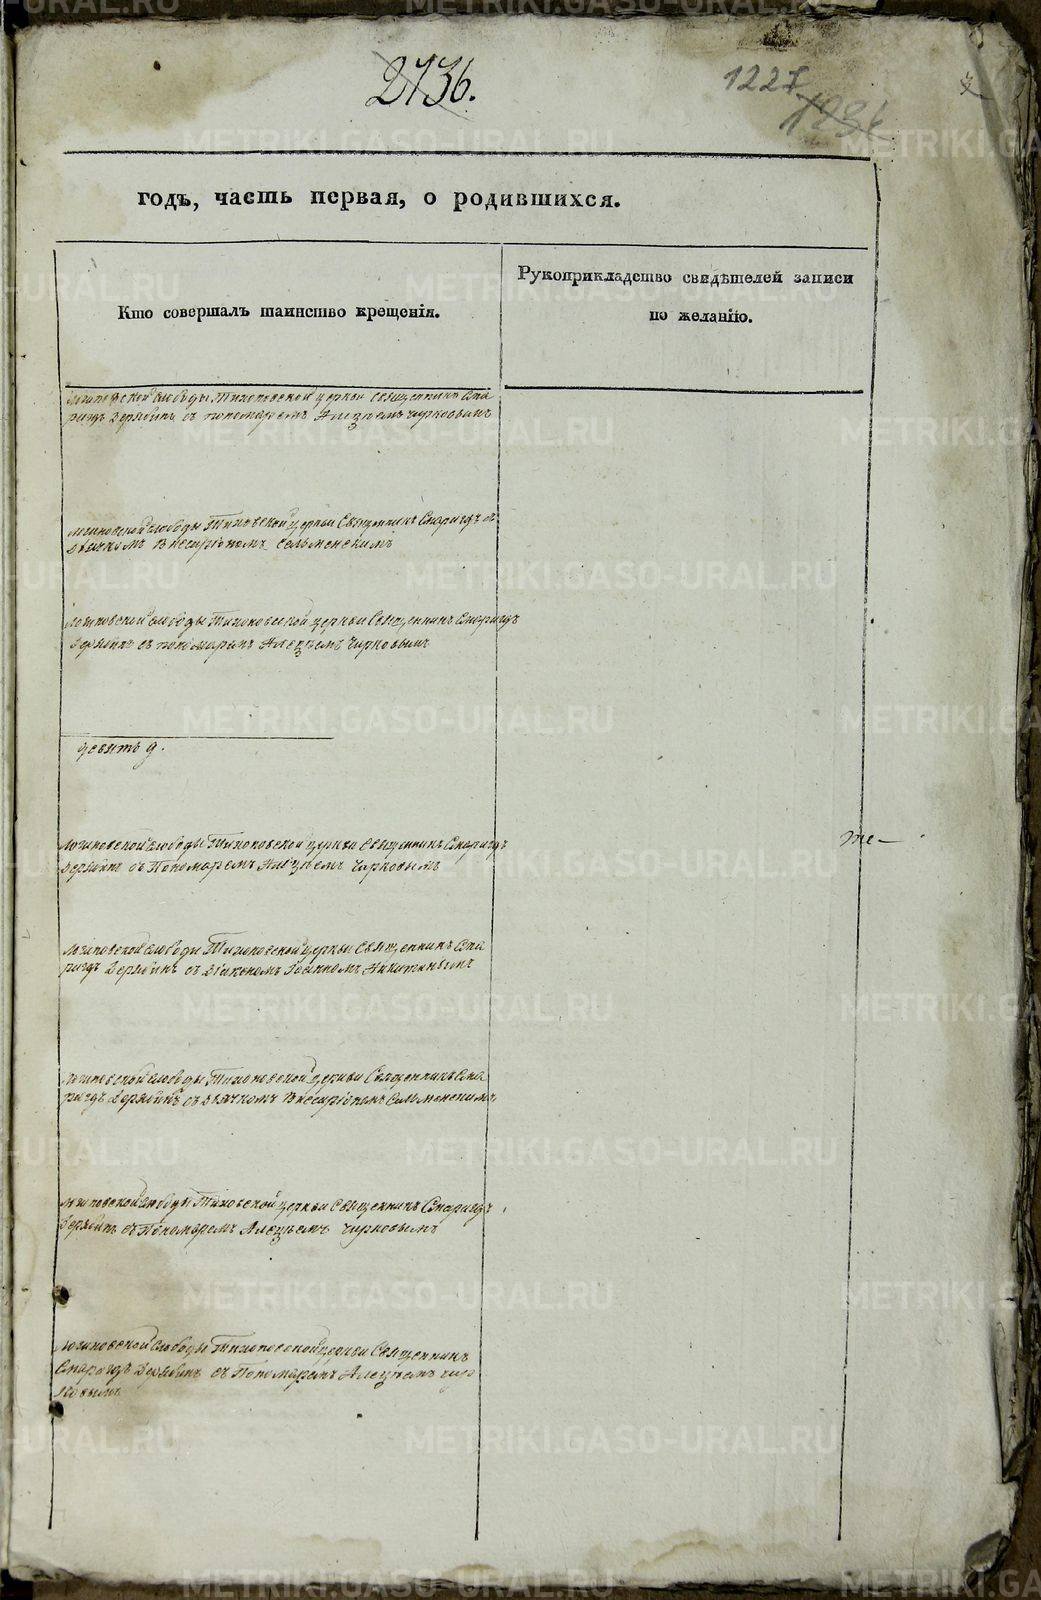 2736.
1227
1236
годъ, часть первая, о родившихся.
Кто совершалъ таинство крещенія.
Рукоприкладство свидѣтелей записи
по желанію.
Логиновской слободы Тихоновской церкви священникъ Спи
ридъ Дерябинъ съ пономаремъ Алецѣемъ Чирковымъ
Логиновской слободы Тиховской церкви Священникъ Спиридъ съ
дьячкомъ Виссаріономъ Сельменскимъ
Логиновской слободы Тихоновской церкви Священникъ Спиридъ
Дерябинъ съ пономаремъ Алецѣемъ Чирковымъ
девять 9.
Логиновской слободы Тихоновской церкви Священникъ Спиридъ
Дерябинъ съ Пономаремъ Алецѣемъ Чирковымъ
же
Логиновской слободы Тихоновской церкви Священникъ Спи
ридъ Дерябинъ съ Діакономъ Іоанномъ Никитинымъ
Логиновской слободы Тихоновской церкви Священникъ Спи
ридъ Дерябинъ съ дьячкомъ Виссаріономъ Сельменскимъ
Логиновской слободы Тиховской церкви Священникъ Спиридъ
Дерябинъ съ Пономаремъ Алецѣемъ Чирковымъ
Логиновской слободы Тихоновской церкви Священникъ
Спиридъ Дерябинъ съ Пономаремъ Алецѣемъ Чир
ковымъ
METRIKI.GASO-URAL.RU